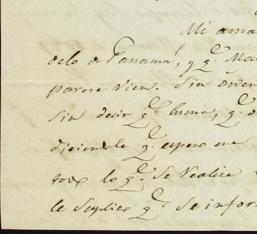 Mi ama
de Panamá, y q.e Ma
parece bien. Sin orden
sin decir q.e
diciendole q.e espero me
lo q.e se realize
le suplico q.e se infor